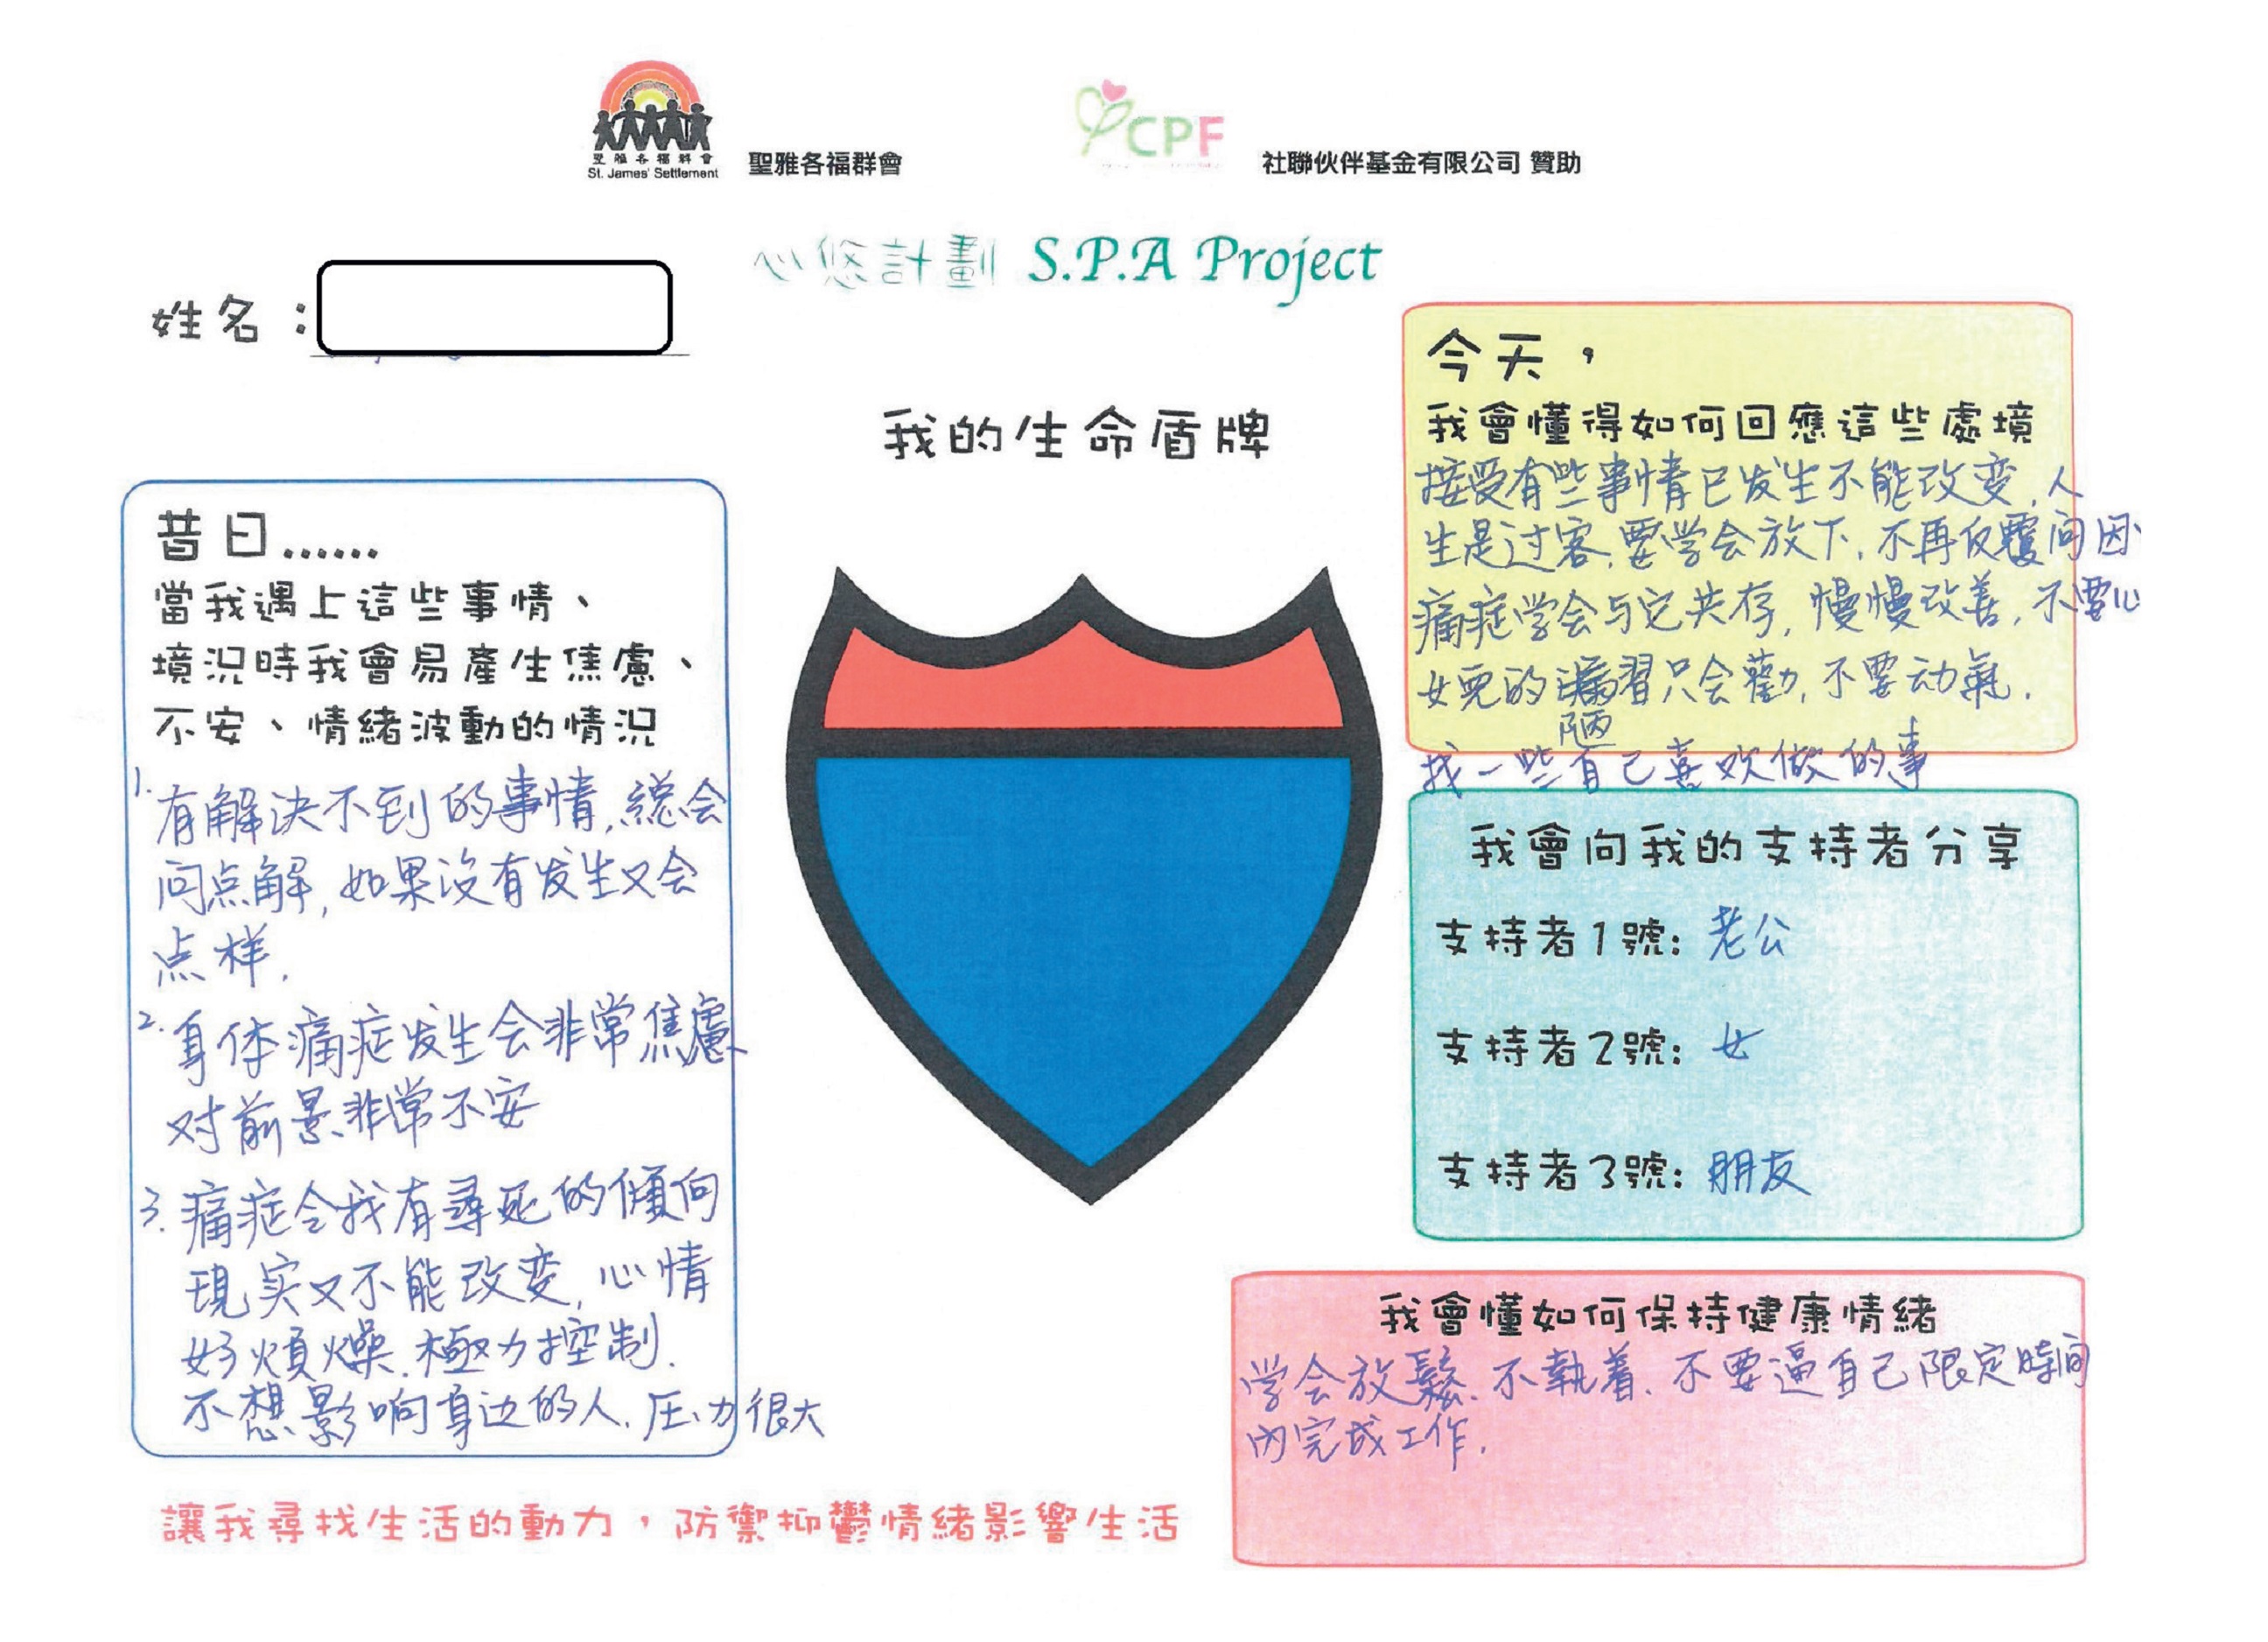 聖雅各福群會
St. James' Settlement
聖雅各福群會
CPF
社聯伙伴基金有限公司 贊助
心悠計劃 S.P.A Project
姓名：
我的生命盾牌
昔日……
當我遇上這些事情、
境況時我會易產生焦慮、
不安、情緒波動的情況
1. 有解決不到的事情,總会
问点解,如果没有发生又会
点样.
2. 身体痛症发生会非常焦慮
对前景非常不安
3. 痛症令我有尋死的傾向
現实又不能改变,心情
好煩燥.極力控制.
不想影响身边的人.压力很大
今天，
我會懂得如何回應這些處境
接受有些事情已发生不能改变,人
生是过客,要学会放下,不再反覆问因
痛症学会与它共存,慢慢改善,不要心
女兒的習只会勸,不要动氣.
陋
找一些自己喜欢做的事
我會向我的支持者分享
支持者1號: 老公
支持者2號: 女
支持者3號: 朋友
我會懂如何保持健康情緒
学会放鬆.不執着.不要逼自己限定時间
内完成工作.
讓我尋找生活的動力，防禦抑鬱情緒影響生活